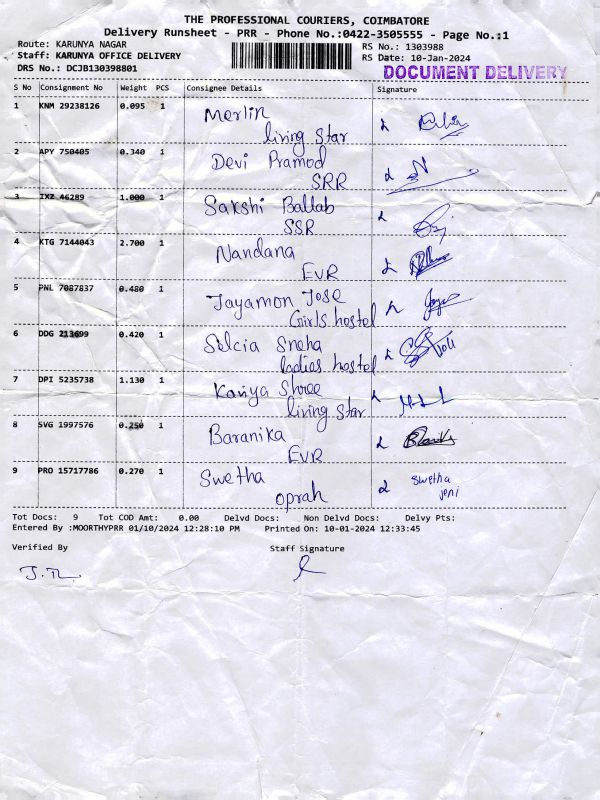 THE PROFESSIONAL COURIERS, COIMBATORE
Delivery Runsheet - PRR - Phone No.:0422-3505555 - Page No.:1
Route: KARUNYA NAGAR
Staff: KARUNYA OFFICE DELIVERY
DRS No.: DCJB130398801
RS No.: 1303988
RS Date: 10-Jan-2024
DOCUMENT DELIVERY
S No Consignment No Weight PCS Consignee Details Signature
1 KNM 29238126 0.095 1 Merlin
living Star
2 APY 750405 0.340 1 Devi Pramod
SRR
3 IXZ 46289 1.000 1 Sakshi Ballab
SSR
4 KTG 7144043 2.700 1 Nandana
EVR
5 PNL 7087837 0.480 1 Jayamon Jose
Girls hostel
6 DDG 213699 0.420 1 Selcia Sneha
ladies hostel
7 DPI 5235738 1.130 1 Kaviya Shree
living Star
8 SVG 1997576 0.250 1 Baranika
EVR
9 PRO 15717786 0.270 1 Swetha Swetha
oprah jeni
Tot Docs: 9 Tot COD Amt: 0.00 Delvd Docs: Non Delvd Docs: Delvy Pts:
Entered By :MOORTHYPRR 01/10/2024 12:28:10 PM Printed On: 10-01-2024 12:33:45
Verified By Staff Signature